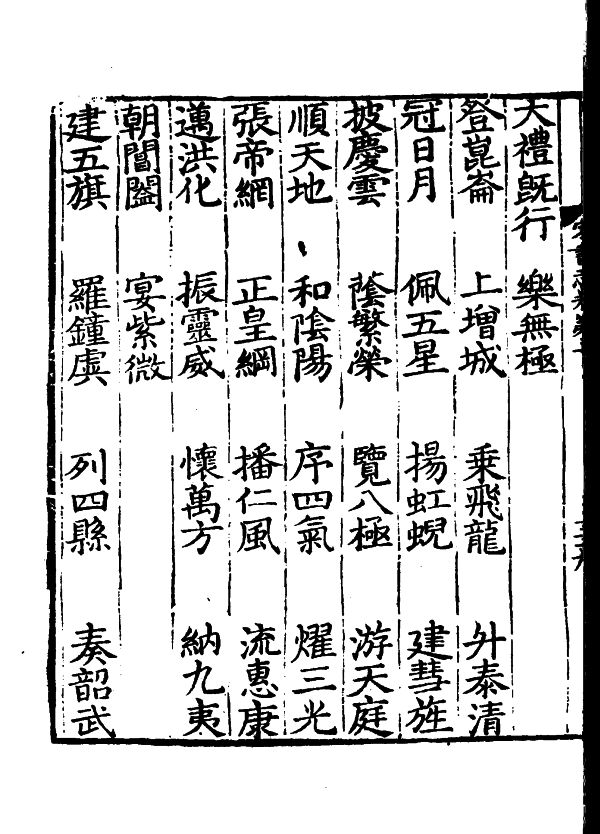 大禮旣行 樂無極
登崑崙 上增城 乗飛龍 升泰清
冠日月 佩五星 揚虹蜺 建彗旌
披慶雲 蔭繁榮 覽八極 游天庭
順天地 和陰陽 序四氣 燿三光
張帝網 正皇綱 播仁風 流惠康
邁洪化 振靈威 懷萬方 納九夷
朝閶闔 宴紫微
建五旗 羅鐘虡 列四縣 奏韶武